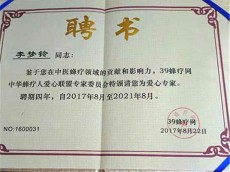 聘书
李梦铃 同志：
鉴于您在中医蜂疗领域的贡献和影响力，39蜂疗网
中华蜂疗人爱心联盟专家委员会特颁请您为爱心专家。
聘期四年，自2017年8月至2021年8月。
NO:1600031
39蜂疗网
2017年8月22日